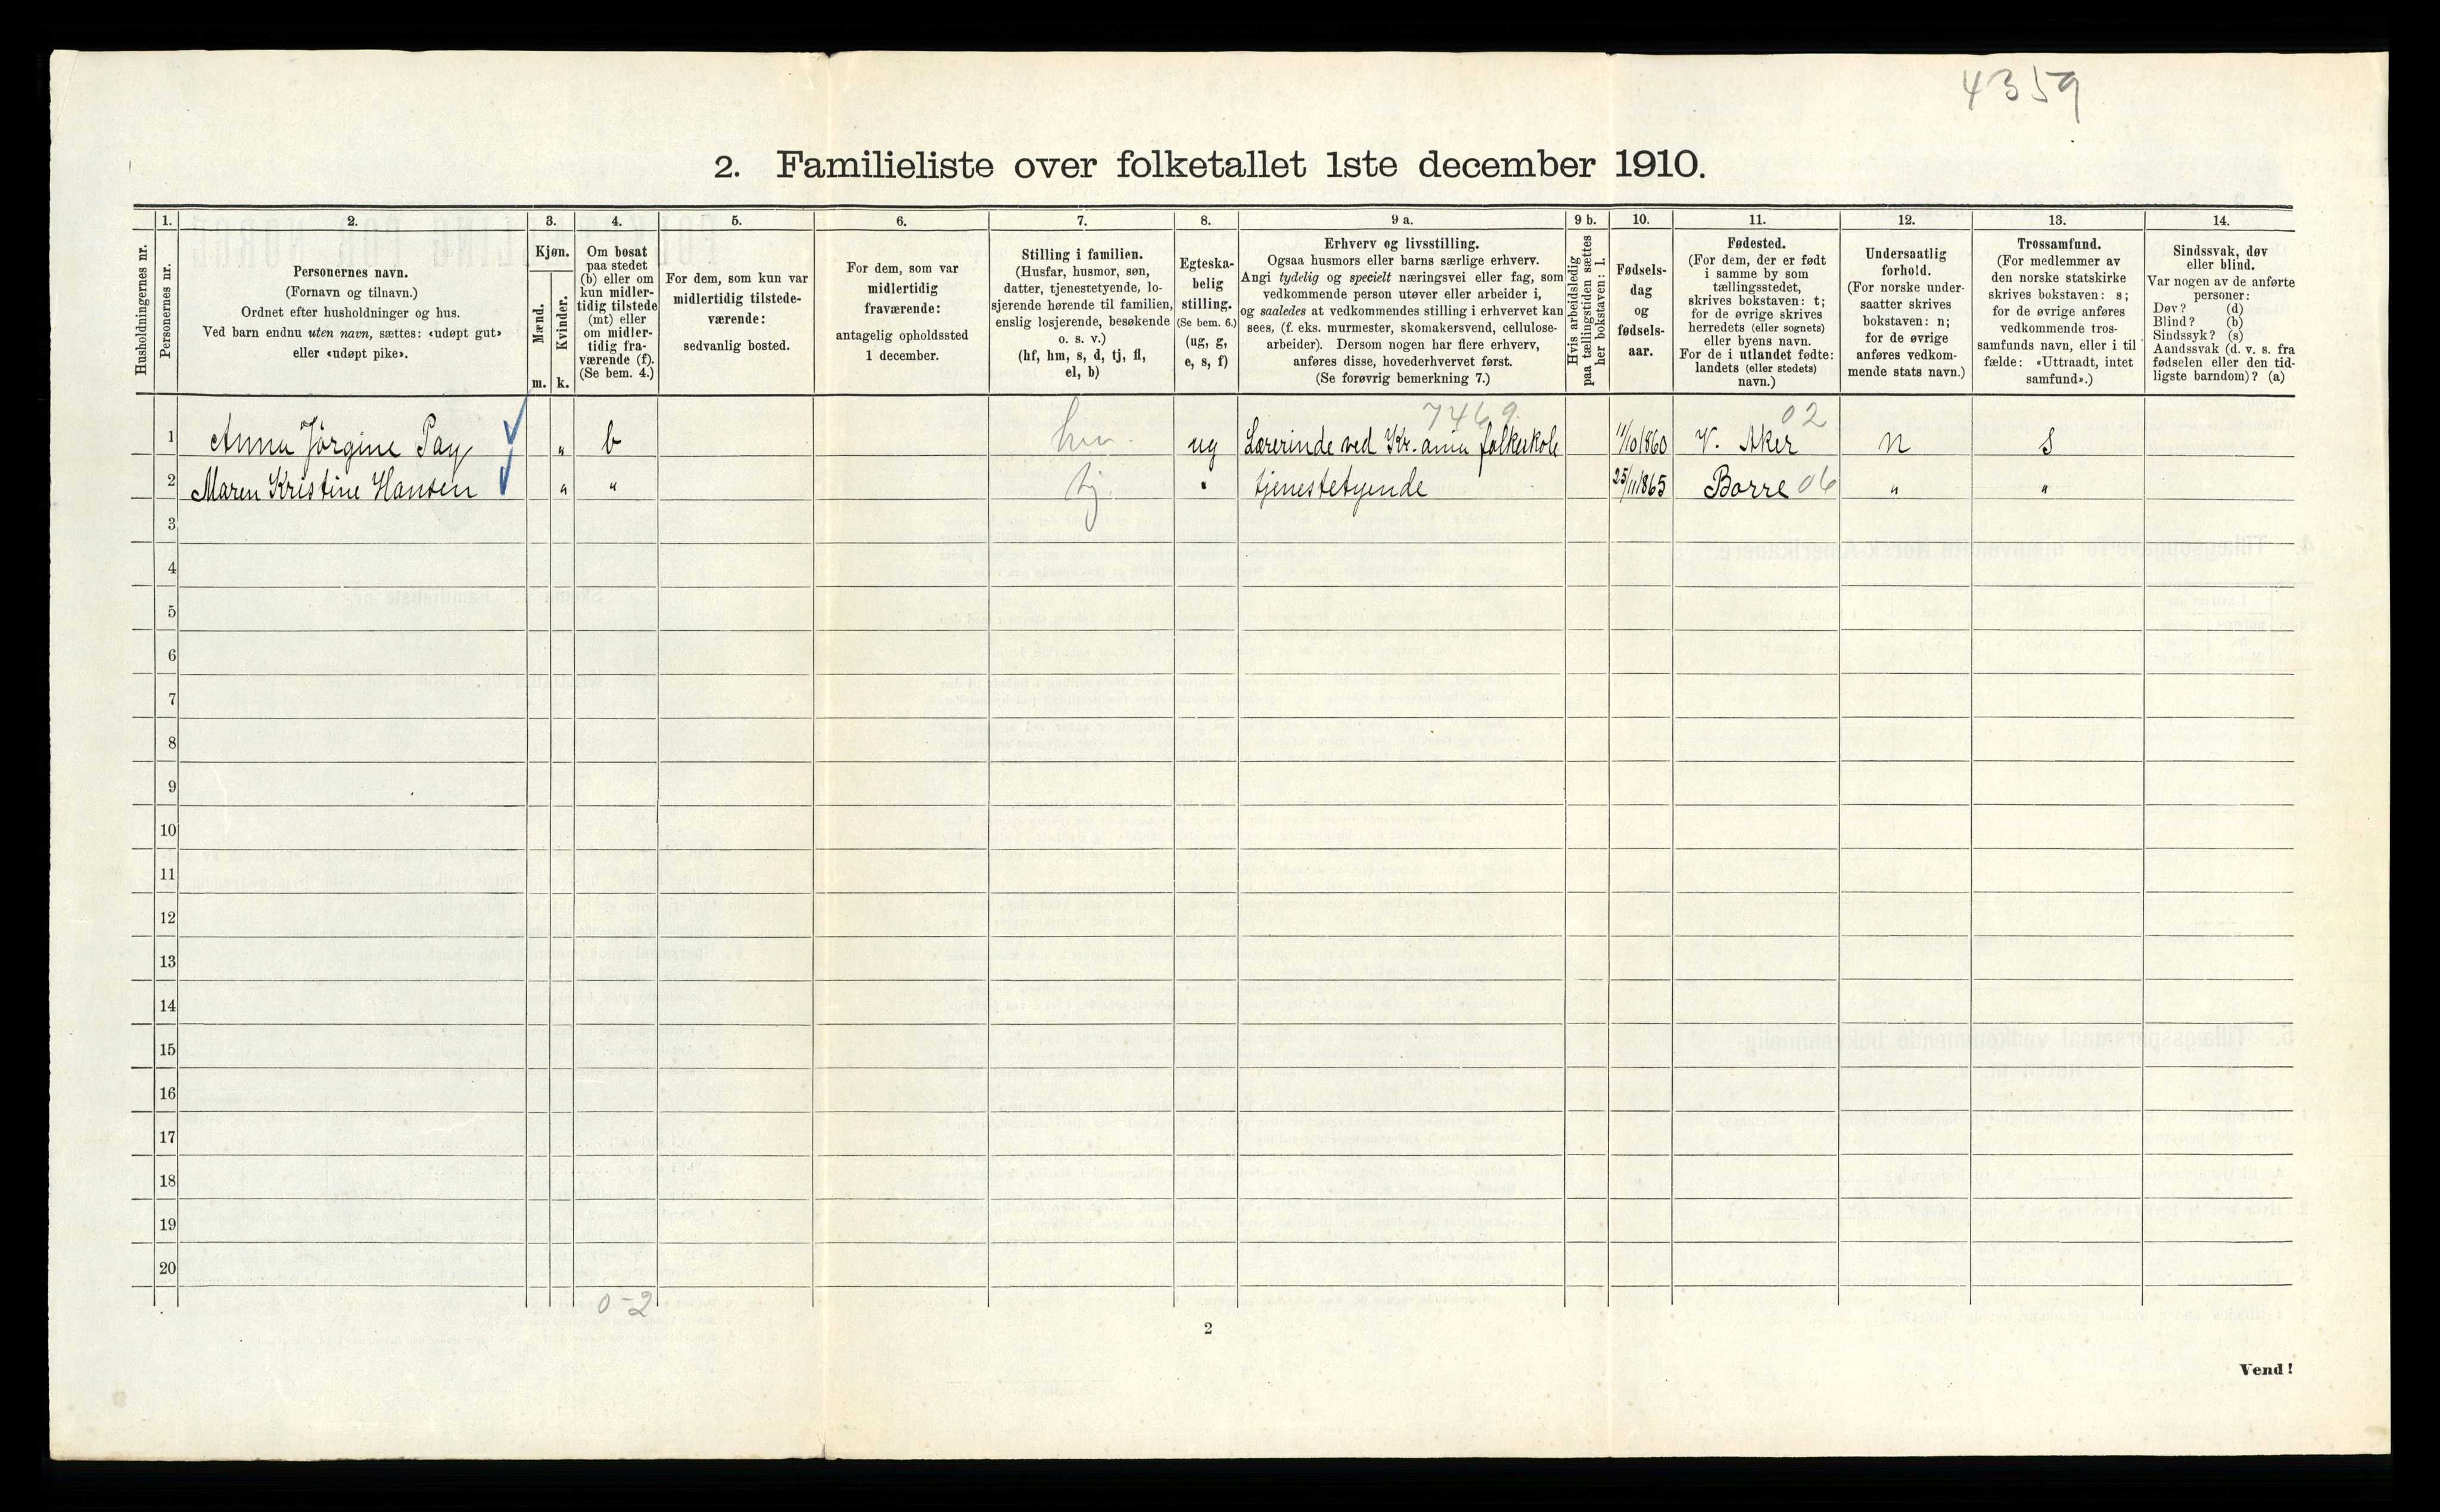 4359
2. Familieliste over folketallet 1ste december 1910.
Husholdningernes nr.
1.
Personernes nr.
2.
Personernes navn.
(Fornavn og tilnavn.)
Ordnet efter husholdninger og hus.
Ved barn endnu uten navn, sættes: «udøpt gut»
eller «udøpt pike».
3.
Kjøn.
Mænd.
Kvinder.
m. k.
4.
Om bosat
paa stedet
(b) eller om
kun midler-
tidig tilstede
(mt) eller
om midler-
tidig fra-
værende (f).
(Se bem. 4.)
5.
For dem, som kun var
midlertidig tilstede-
værende:
sedvanlig bosted.
6.
For dem, som var
midlertidig
fraværende:
antagelig opholdssted
1 december.
7.
Stilling i familien.
(Husfar, husmor, søn,
datter, tjenestetyende, lo-
sjerende hørende til familien,
enslig losjerende, besøkende
o. s. v.)
(hf, hm, s, d, tj, fl,
el, b)
8.
Egteska-
belig
stilling.
(Se bem. 6.)
(ug, g,
e, s, f)
9 a.
Erhverv og livsstilling.
Ogsaa husmors eller barns særlige erhverv.
Angi tydelig og specielt næringsvei eller fag, som
vedkommende person utøver eller arbeider i,
og saaledes at vedkommendes stilling i erhvervet kan
sees, (f. eks. murmester, skomakersvend, cellulose-
arbeider). Dersom nogen har flere erhverv,
anføres disse, hovederhvervet først.
(Se forøvrig bemerkning 7.)
9 b.
Hvis arbeidsledig
paa tællingstiden sættes
her bokstaven: l.
10.
Fødsels-
dag
og
fødsels-
aar.
11.
Fødested.
(For dem, der er født
i samme by som
tællingsstedet,
skrives bokstaven: t;
for de øvrige skrives
herredets (eller sognets)
eller byens navn.
For de i utlandet fødte:
landets (eller stedets)
navn.)
12.
Undersaatlig
forhold.
(For norske under-
saatter skrives
bokstaven: n;
for de øvrige
anføres vedkom-
mende stats navn.)
13.
Trossamfund.
(For medlemmer av
den norske statskirke
skrives bokstaven: s;
for de øvrige anføres
vedkommende tros-
samfunds navn, eller i til-
fælde: «Uttraadt, intet
samfund».)
14.
Sindssvak, døv
eller blind.
Var nogen av de anførte
personer:
Døv? (d)
Blind? (b)
Sindssyk? (s)
Aandssvak (d. v. s. fra
fødselen eller den tid-
ligste barndom)? (a)
7469. 02
1 Anna Jörgine Pay " b hm. ug Lærerinde ved Kr.ania folkeskole 11/10 1860 V. Aker n s
2 Maren Kristine Hansen " " tj. " tjenestetyende 25/11 1865 Borre 06 " "
3
4
5
6
7
8
9
10
11
12
13
14
15
16
17
18
19
20
0-2
2
Vend!